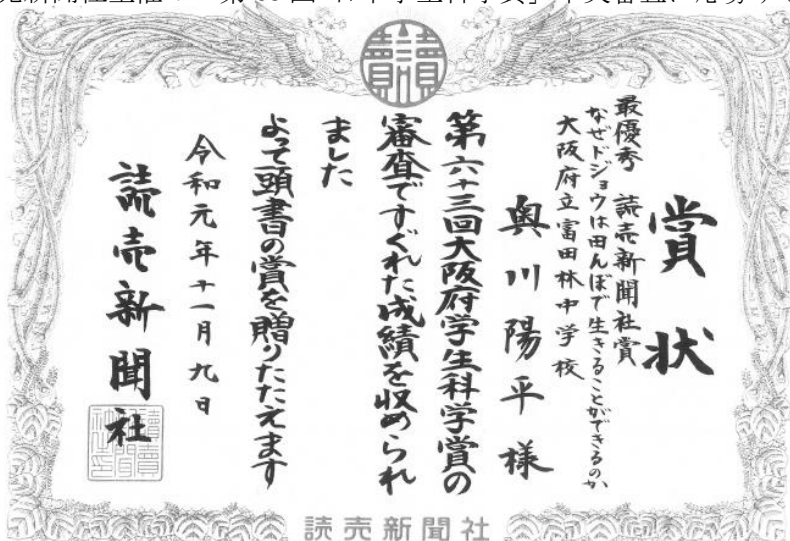 賞状
最優秀 読売新聞社賞
なぜドジョウは田んぼで生きることができるのか
大阪府立富田林中学校
奥川陽平様
第六十三回大阪府学生科学賞の
審査ですぐれた成績を収められ
ました
よって頭書の賞を贈りたたえます
令和元年十一月九日
読売新聞社
読売新聞社